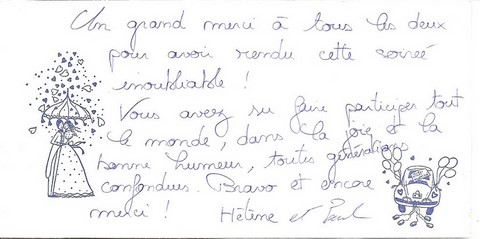 Un grand merci à tous les deux
pour avoir rendu cette soireé
inoubliable !
Vous avez su faire participer tout
le monde, dans la joie et la
bonne humeur, toutes générations
confondues. Bravo et encore
merci ! Hélène et Paul